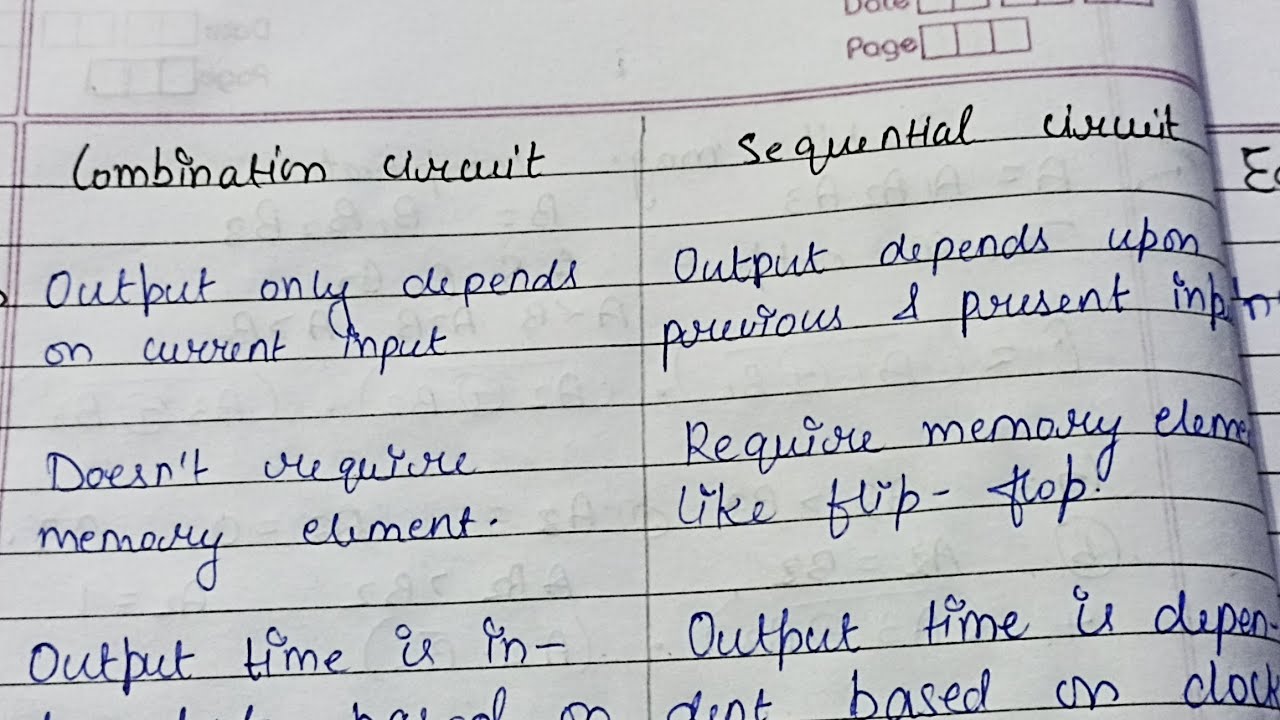 Date
Page
Combination circuit
Sequential circuit
Output only depends
on current input
Output depends upon
previous & present input
Doesn't require
memory element.
Require memory eleme
like flip-flop.
Output time is in-
Output time is depen-
based on
dent based on clock